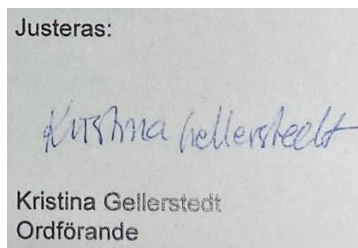 Justeras:
Kristina Gellerstedt
Kristina Gellerstedt
Ordförande